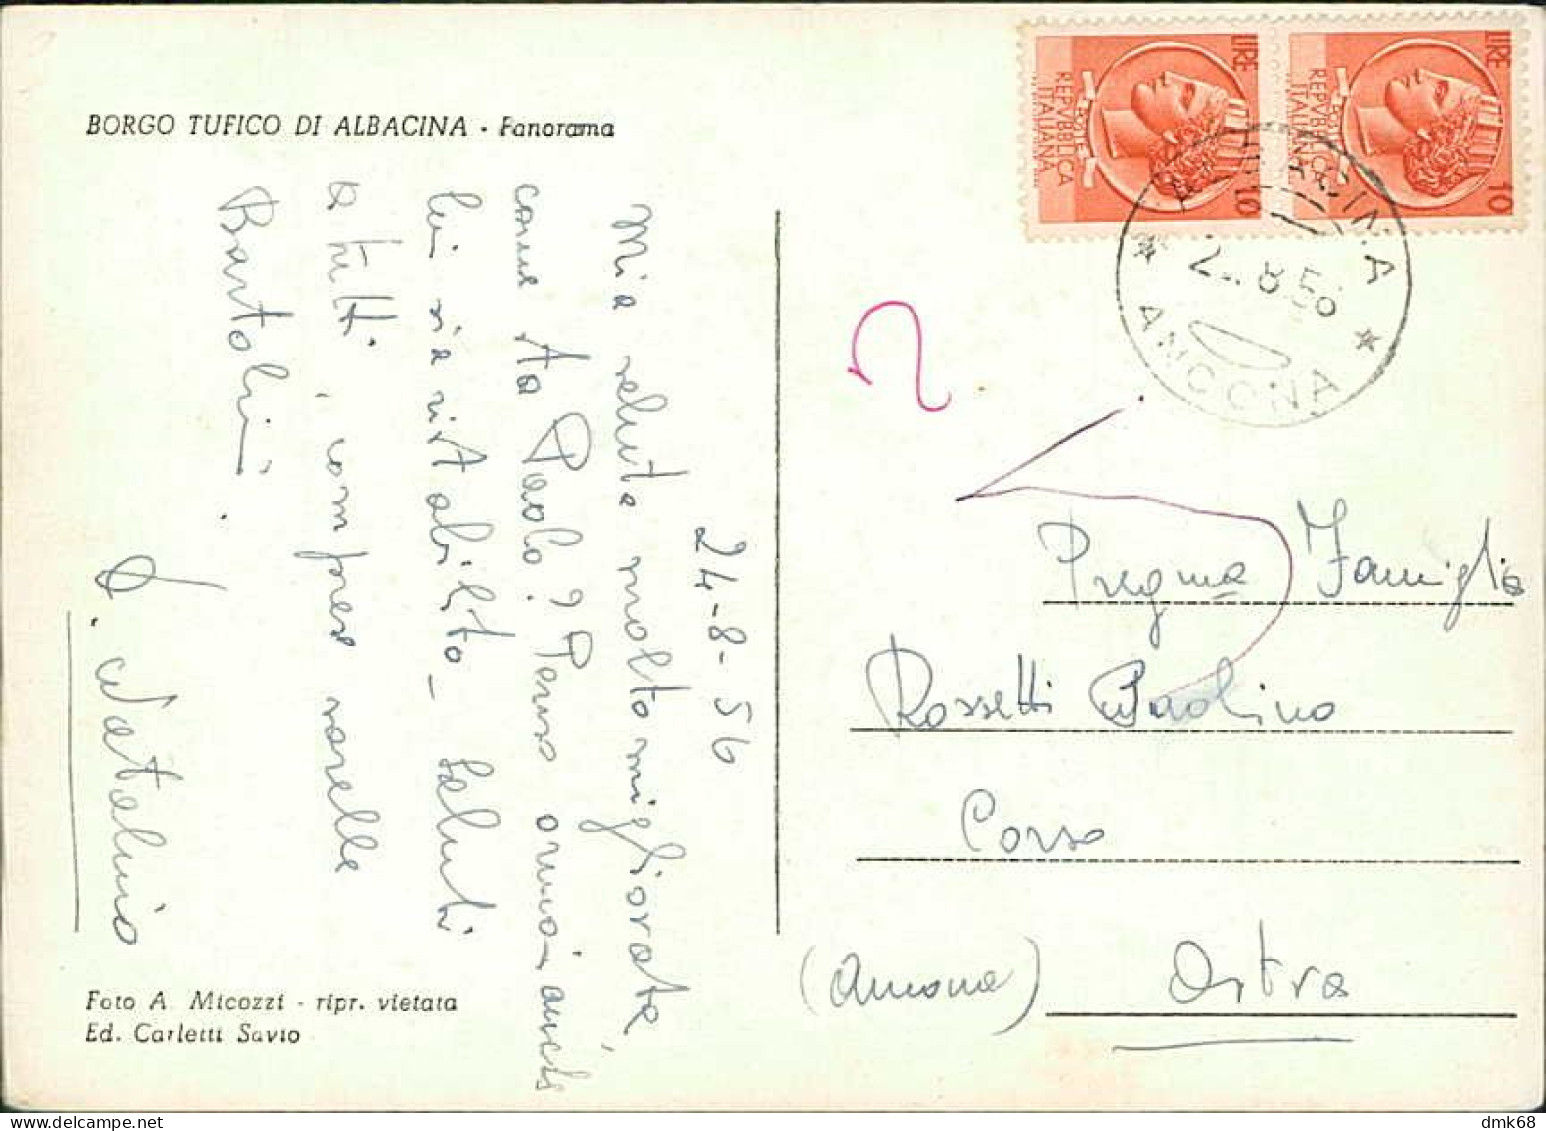 BORGO TUFICO DI ALBACINA - Panorama
24-8-56
Mia salute molto migliorata,
come sta Paolo? Penso ormai anche
lui sia ristabilito - Saluti
a tutti, compreso sorelle
Bartolini.
Natalino
Foto A. Micozzi - ripr. vietata
Ed. Carletti Savio
LIRE
REPVBBLICA
ITALIANA
POSTE
10
LIRE
REPVBBLICA
ITALIANA
POSTE
10
ALBACINA
8.56
ANCONA
Pregma Famiglia
Rossetti Paolino
Corso
(Ancona) Ostra
dmk68